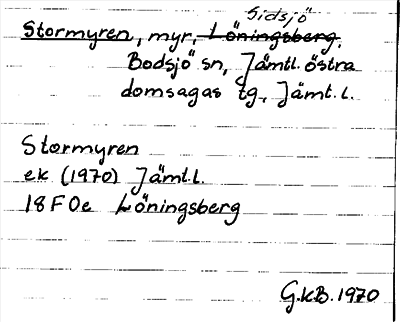 Sidsjö
Stormyren, myr, Löningsberg,
Bodsjö sn, Jämtl. östra
domsagas tg., Jämt. l.
Stormyren
ek (1970) Jämt.l.
18 F 0e Löningsberg
G.k.B. 1970